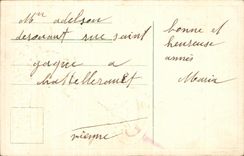 Mr adelson
derouaut rue saint
jaque a
Chattellerault
vienne
bonne et
heureuse
année
Maria